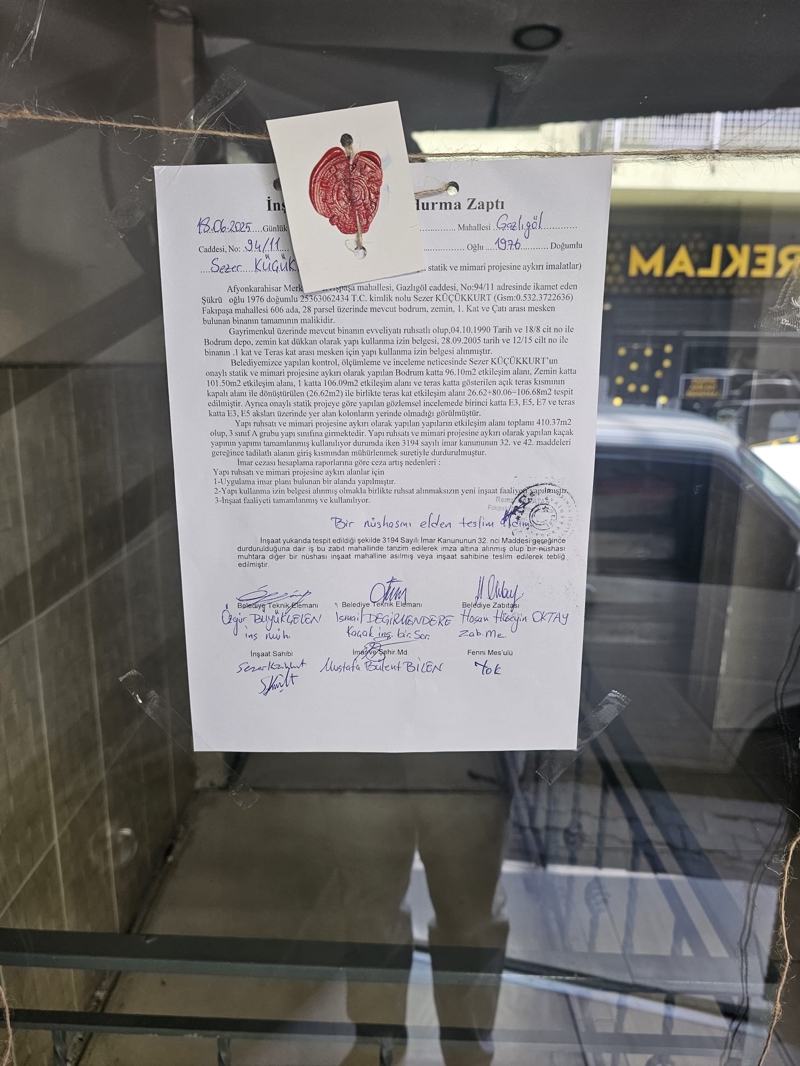 İnş durma Zaptı
18.06.2025 Günlük Mahallesi Gazlıgöl
Caddesi, No: 94/11 Oğlu 1976 Doğumlu
Sezer KÜÇÜK statik ve mimari projesine aykırı imalatlar)
Afyonkarahisar Merk paşa mahallesi, Gazlıgöl caddesi, No:94/11 adresinde ikamet eden
Şükrü oğlu 1976 doğumlu 25363062434 T.C. kimlik nolu Sezer KÜÇÜKKURT (Gsm:0.532.3722636)
Fakıpaşa mahallesi 606 ada, 28 parsel üzerinde mevcut bodrum, zemin, 1. Kat ve Çatı arası mesken
bulunan binanın tamamının malikidir.
Gayrimenkul üzerinde mevcut binanın evveliyatı ruhsatlı olup,04.10.1990 Tarih ve 18/8 cit no ile
Bodrum depo, zemin kat dükkan olarak yapı kullanma izin belgesi, 28.09.2005 tarih ve 12/15 cilt no ile
binanın .1 kat ve Teras kat arası mesken için yapı kullanma izin belgesi alınmıştır.
Belediyemizce yapılan kontrol, ölçümleme ve inceleme neticesinde Sezer KÜÇÜKKURT'un
onaylı statik ve mimari projesine aykırı olarak yapılan Bodrum katta 96.10m2 etkileşim alanı, Zemin katta
101.50m2 etkileşim alanı, 1 katta 106.09m2 etkileşim alanı ve teras katta gösterilen açık teras kısmının
kapalı alanı ile dönüştürülen (26.62m2) ile birlikte teras kat etkileşim alanı 26.62+80.06=106.68m2 tespit
edilmiştir. Ayrıca onaylı statik projeye göre yapılan gözlemsel incelemede birinci katta E3, E5, E7 ve teras
katta E3, E5 aksları üzerinde yer alan kolonların yerinde olmadığı görülmüştür.
Yapı ruhsatı ve mimari projesine aykırı olarak yapılan yapıların etkileşim alanı toplamı 410.37m2
olup, 3 sınıf A grubu yapı sınıfına girmektedir. Yapı ruhsatı ve mimari projesine aykırı olarak yapılan kaçak
yapının yapımı tamamlanmış kullanılıyor durumda iken 3194 sayılı imar kanununun 32. ve 42. maddeleri
gereğince tadilatlı alanın giriş kısmından mühürlenmek suretiyle durdurulmuştur.
İmar cezası hesaplama raporlarına göre ceza artış nedenleri :
Yapı ruhsatı ve mimari projesine aykırı alanlar için
1-Uygulama imar planı bulunan bir alanda yapılmıştır.
2-Yapı kullanma izin belgesi alınmış olmakla birlikte ruhsat alınmaksızın yeni inşaat faaliyeti yapılmıştır
3-İnşaat faaliyeti tamamlanmış ve kullanılıyor.
Bir nüshasını elden teslim aldım
İnşaat yukarıda tespit edildiği şekilde 3194 Sayılı İmar Kanununun 32. nci Maddesi gereğince
durdurulduğuna dair iş bu zabıt mahalinde tanzim edilerek imza altına alınmış olup bir nüshası
muhtara diğer bir nüshası inşaat mahaline asılmış veya inşaat sahibine teslim edilerek tebliğ
edilmiştir.
Belediye Teknik Elemanı Belediye Teknik Elemanı Belediye Zabıtası
Özgür BÜYÜKÇELEN İsmail DEĞİRMENDERE Hasan Hüseyin OKTAY
inş müh. Kaçak inş. bir. Sor. Zab. Me.
İnşaat Sahibi İmar ve Şehir Md. Fenni Mes'ulü
Sezer Küçükkurt Mustafa Bülent BİLEN Yok
REKLAM